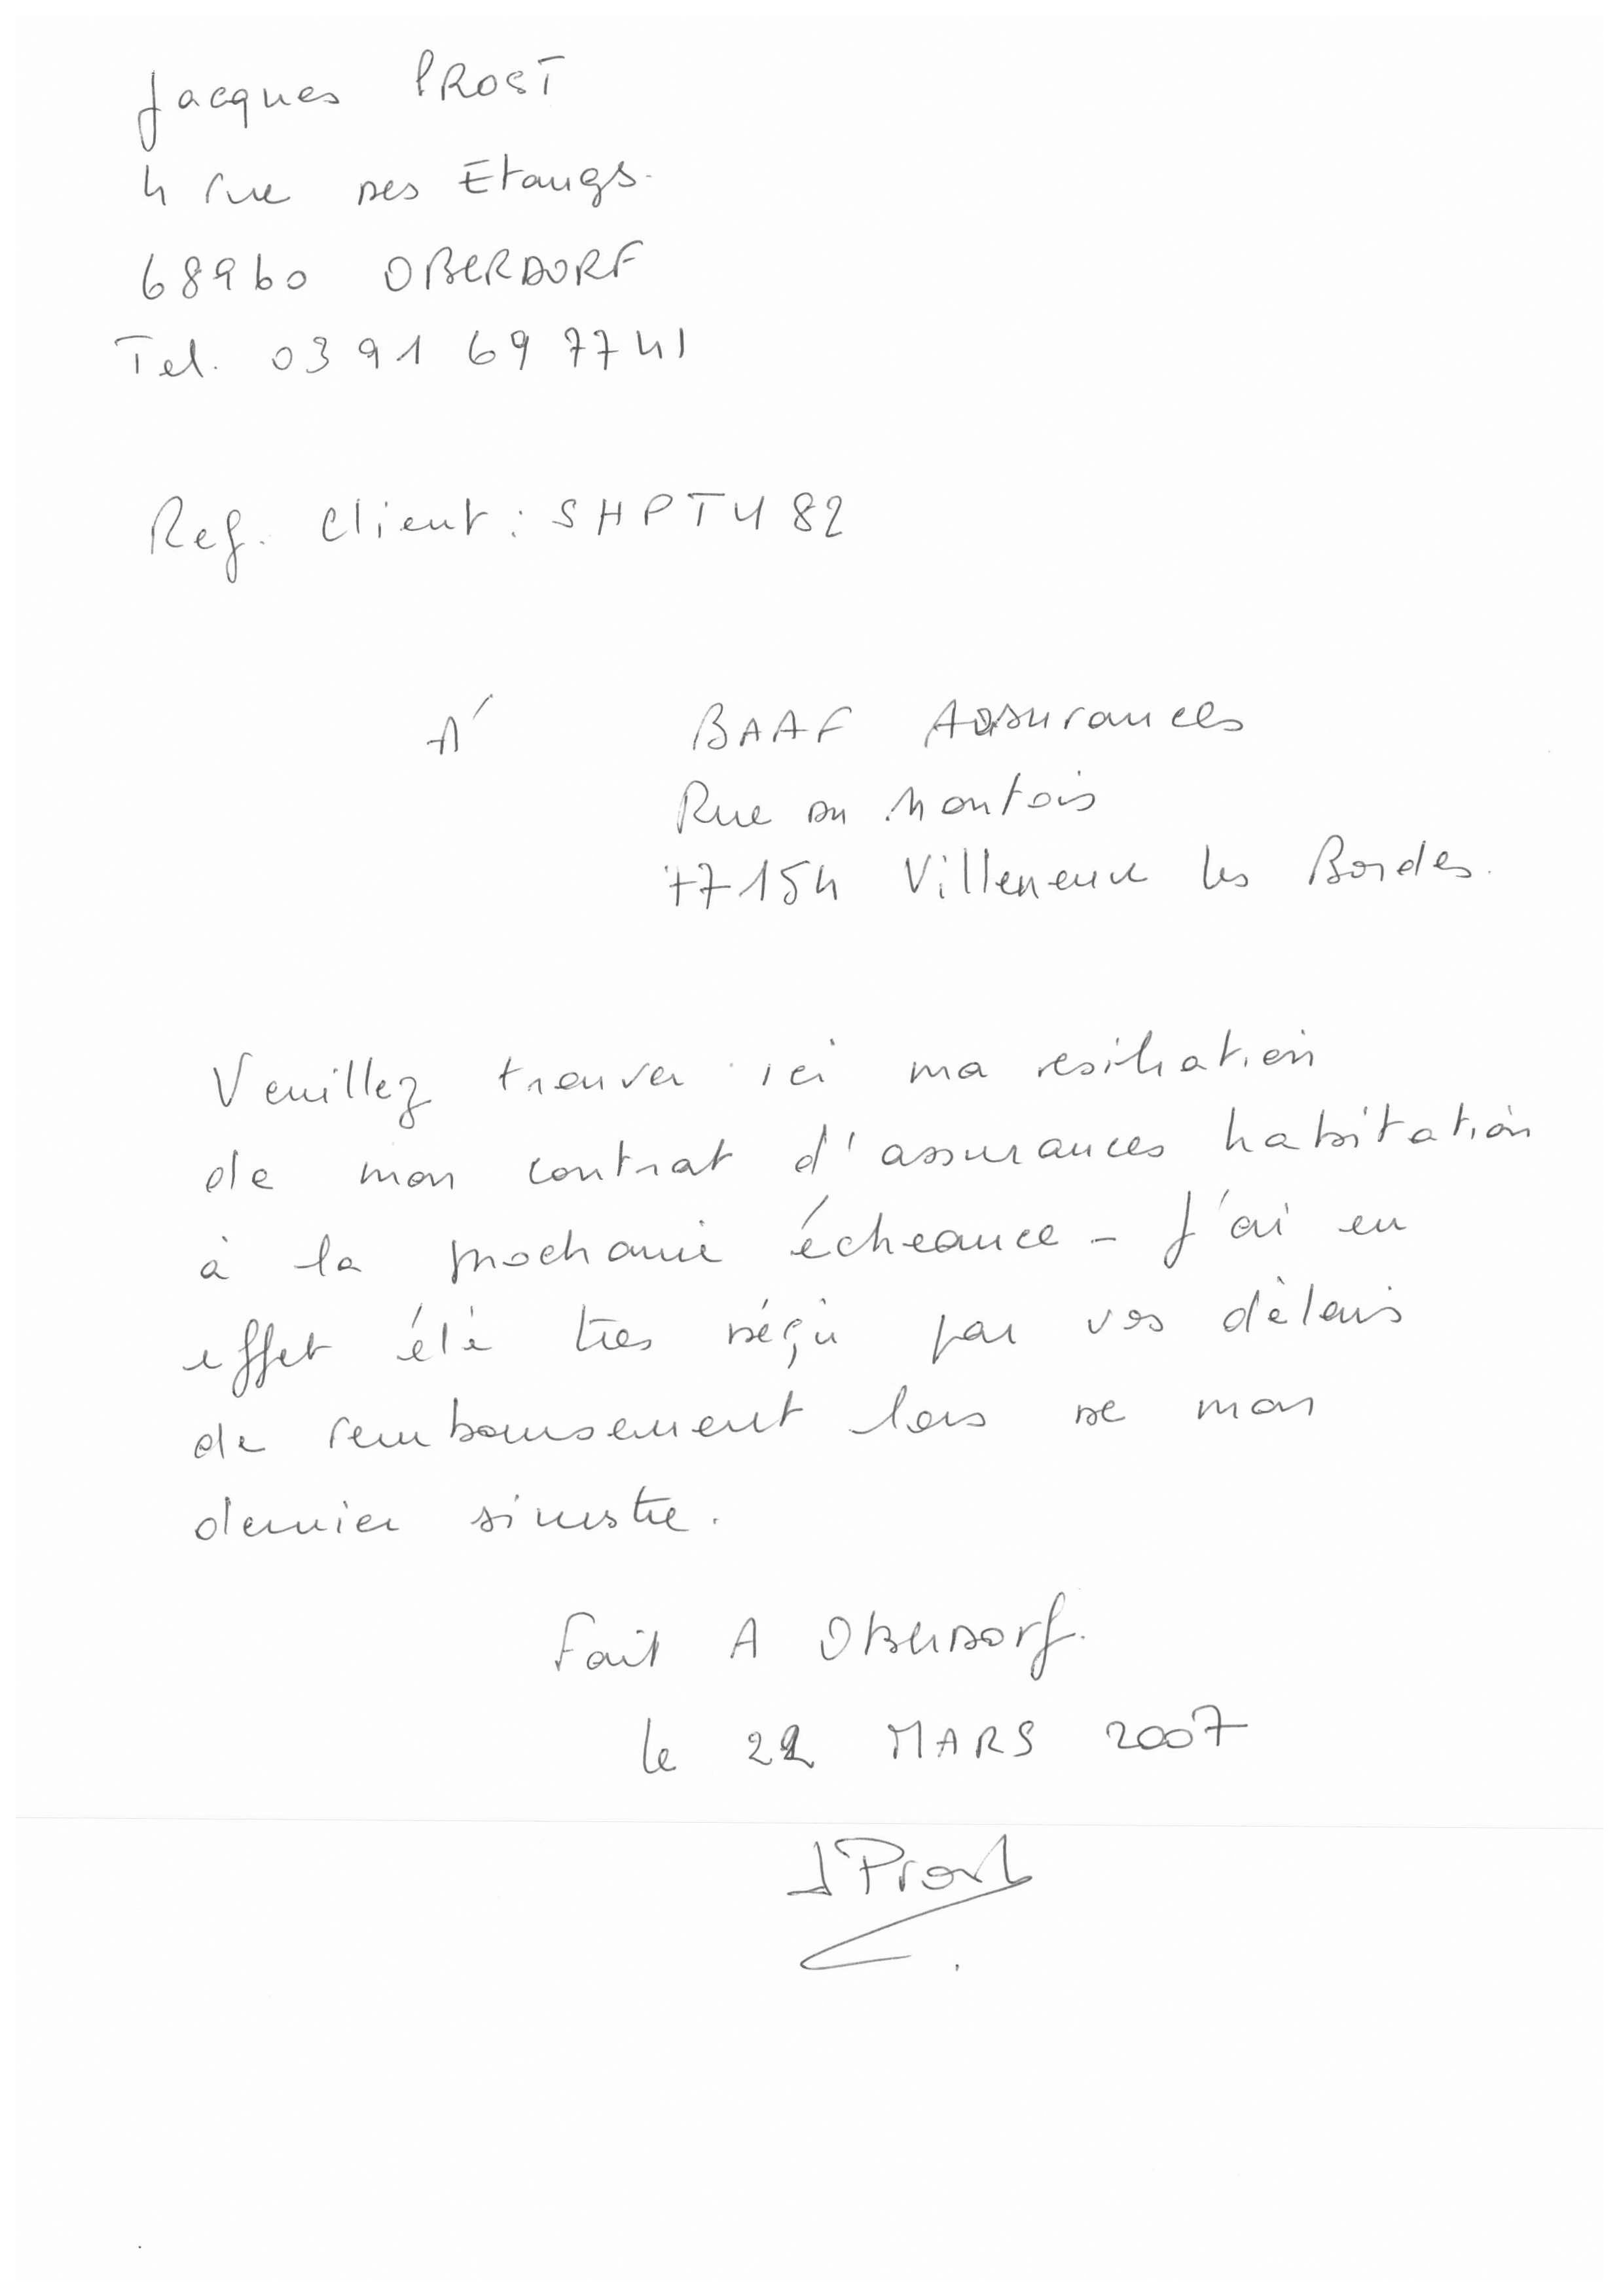 Jacques PROST
4 rue des Etangs.
68960 OBERDORF
Tel. 03 91 69 77 41
Ref. Client : SHPTU82
A
BAAF Assurances
Rue du Montois
77154 Villeneuve les Bordes.
Veuillez trouver ici ma resiliation
de mon contrat d'assurances habitation
à la prochaine échéance - J'ai en
effet été très déçu par vos délais
de remboursement lors de mon
dernier sinistre.
Fait A Oberdorf.
le 22 MARS 2007
J Prost